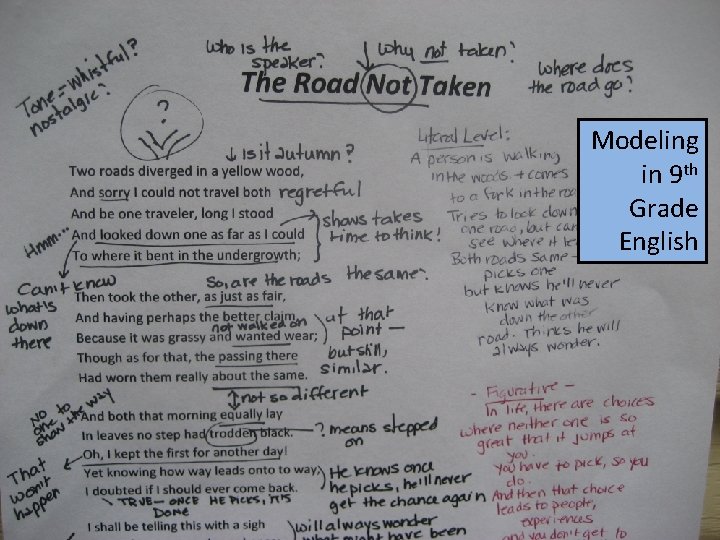 Tone = whistful?
nostalgic?
Who is the
speaker?
Why not taken?
where does
the road go?
The Road Not Taken
?
Modeling
in 9th
Grade
English
↓ Is it autumn?
Two roads diverged in a yellow wood,
And sorry I could not travel both regretful
And be one traveler, long I stood
And looked down one as far as I could
To where it bent in the undergrowth;
shows takes
time to think!
Hmm...
Can't know
what's
down
there
So, are the roads the same?
Then took the other, as just as fair,
And having perhaps the better claim,
not walked on
Because it was grassy and wanted wear;
Though as for that, the passing there
Had worn them really about the same.
at that
point —
but still,
similar.
not so different
No
one to
show the way
And both that morning equally lay
In leaves no step had trodden black.
? means stepped
on
Oh, I kept the first for another day!
That
won't
happen
Yet knowing how way leads onto way,
I doubted if I should ever come back.
He knows once
he picks, he'll never
get the chance again
TRUE - ONCE HE PICKS, IT'S
DONE
I shall be telling this with a sigh
will always wonder
what might have been
Literal Level:
A person is walking
in the woods + comes
to a fork in the
Tries to look down
one road, but
see where it
Both roads same -
picks one
but knows he'll never
know what was
down the other
road. Thinks he will
always wonder.
- Figurative -
In life, there are choices
where neither one is so
great that it jumps at
you.
You have to pick, so you
do.
And then that choice
leads to people,
experiences
and you don't get to